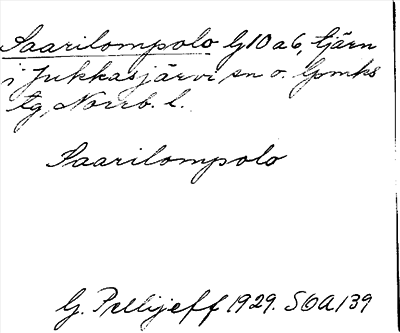 Saarilompolo G10a6, tjärn
i Jukkasjärvi sn o. Gpmks
tg, Norrb. l.
Saarilompolo
G. Pellijeff 1929. SOA 139